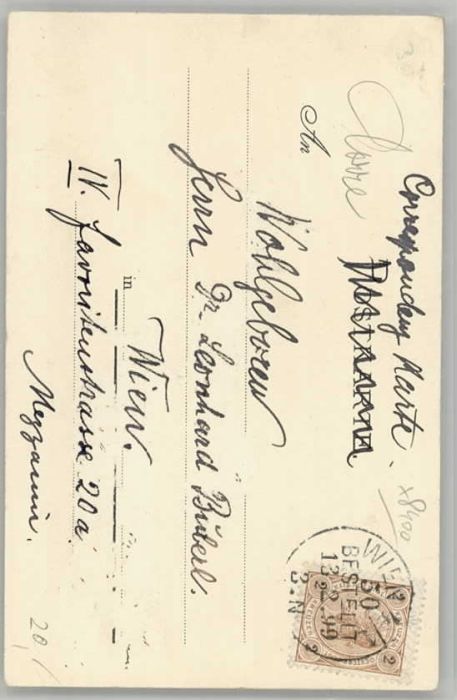 Correspondenz Karte.
POSTKARTE
An
Wohlgeboren
Herrn Dr. Leonhard Biberl.
in Wien.
IV. Favoritenstrasse 20a
Mezzanin.
x8400
20
WIEN
50
BESTELLT
3.N
2
2